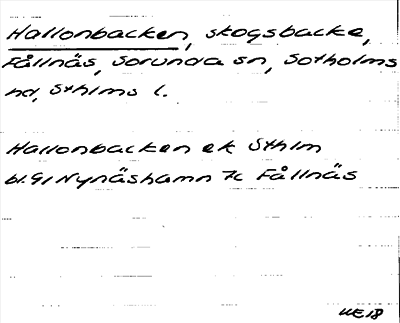 Hallonbacken, skogsbacke,
Fållnäs, Sorunda sn, Sotholms
hd, Sthlms l.
Hallonbacken ek Sthlm
bl. 91 Nynäshamn 7c Fållnäs